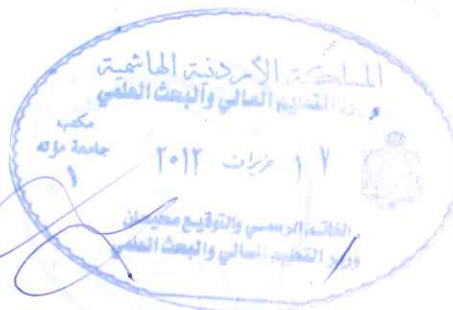 المملكة الأردنية الهاشمية
وزارة التعليم العالي والبحث العلمي
مكتب
جامعة مؤته
١
١٧ حزيران ٢٠١٢
الخاتم الرسمي والتوقيع صحيحان
وزير التعليم العالي والبحث العلمي